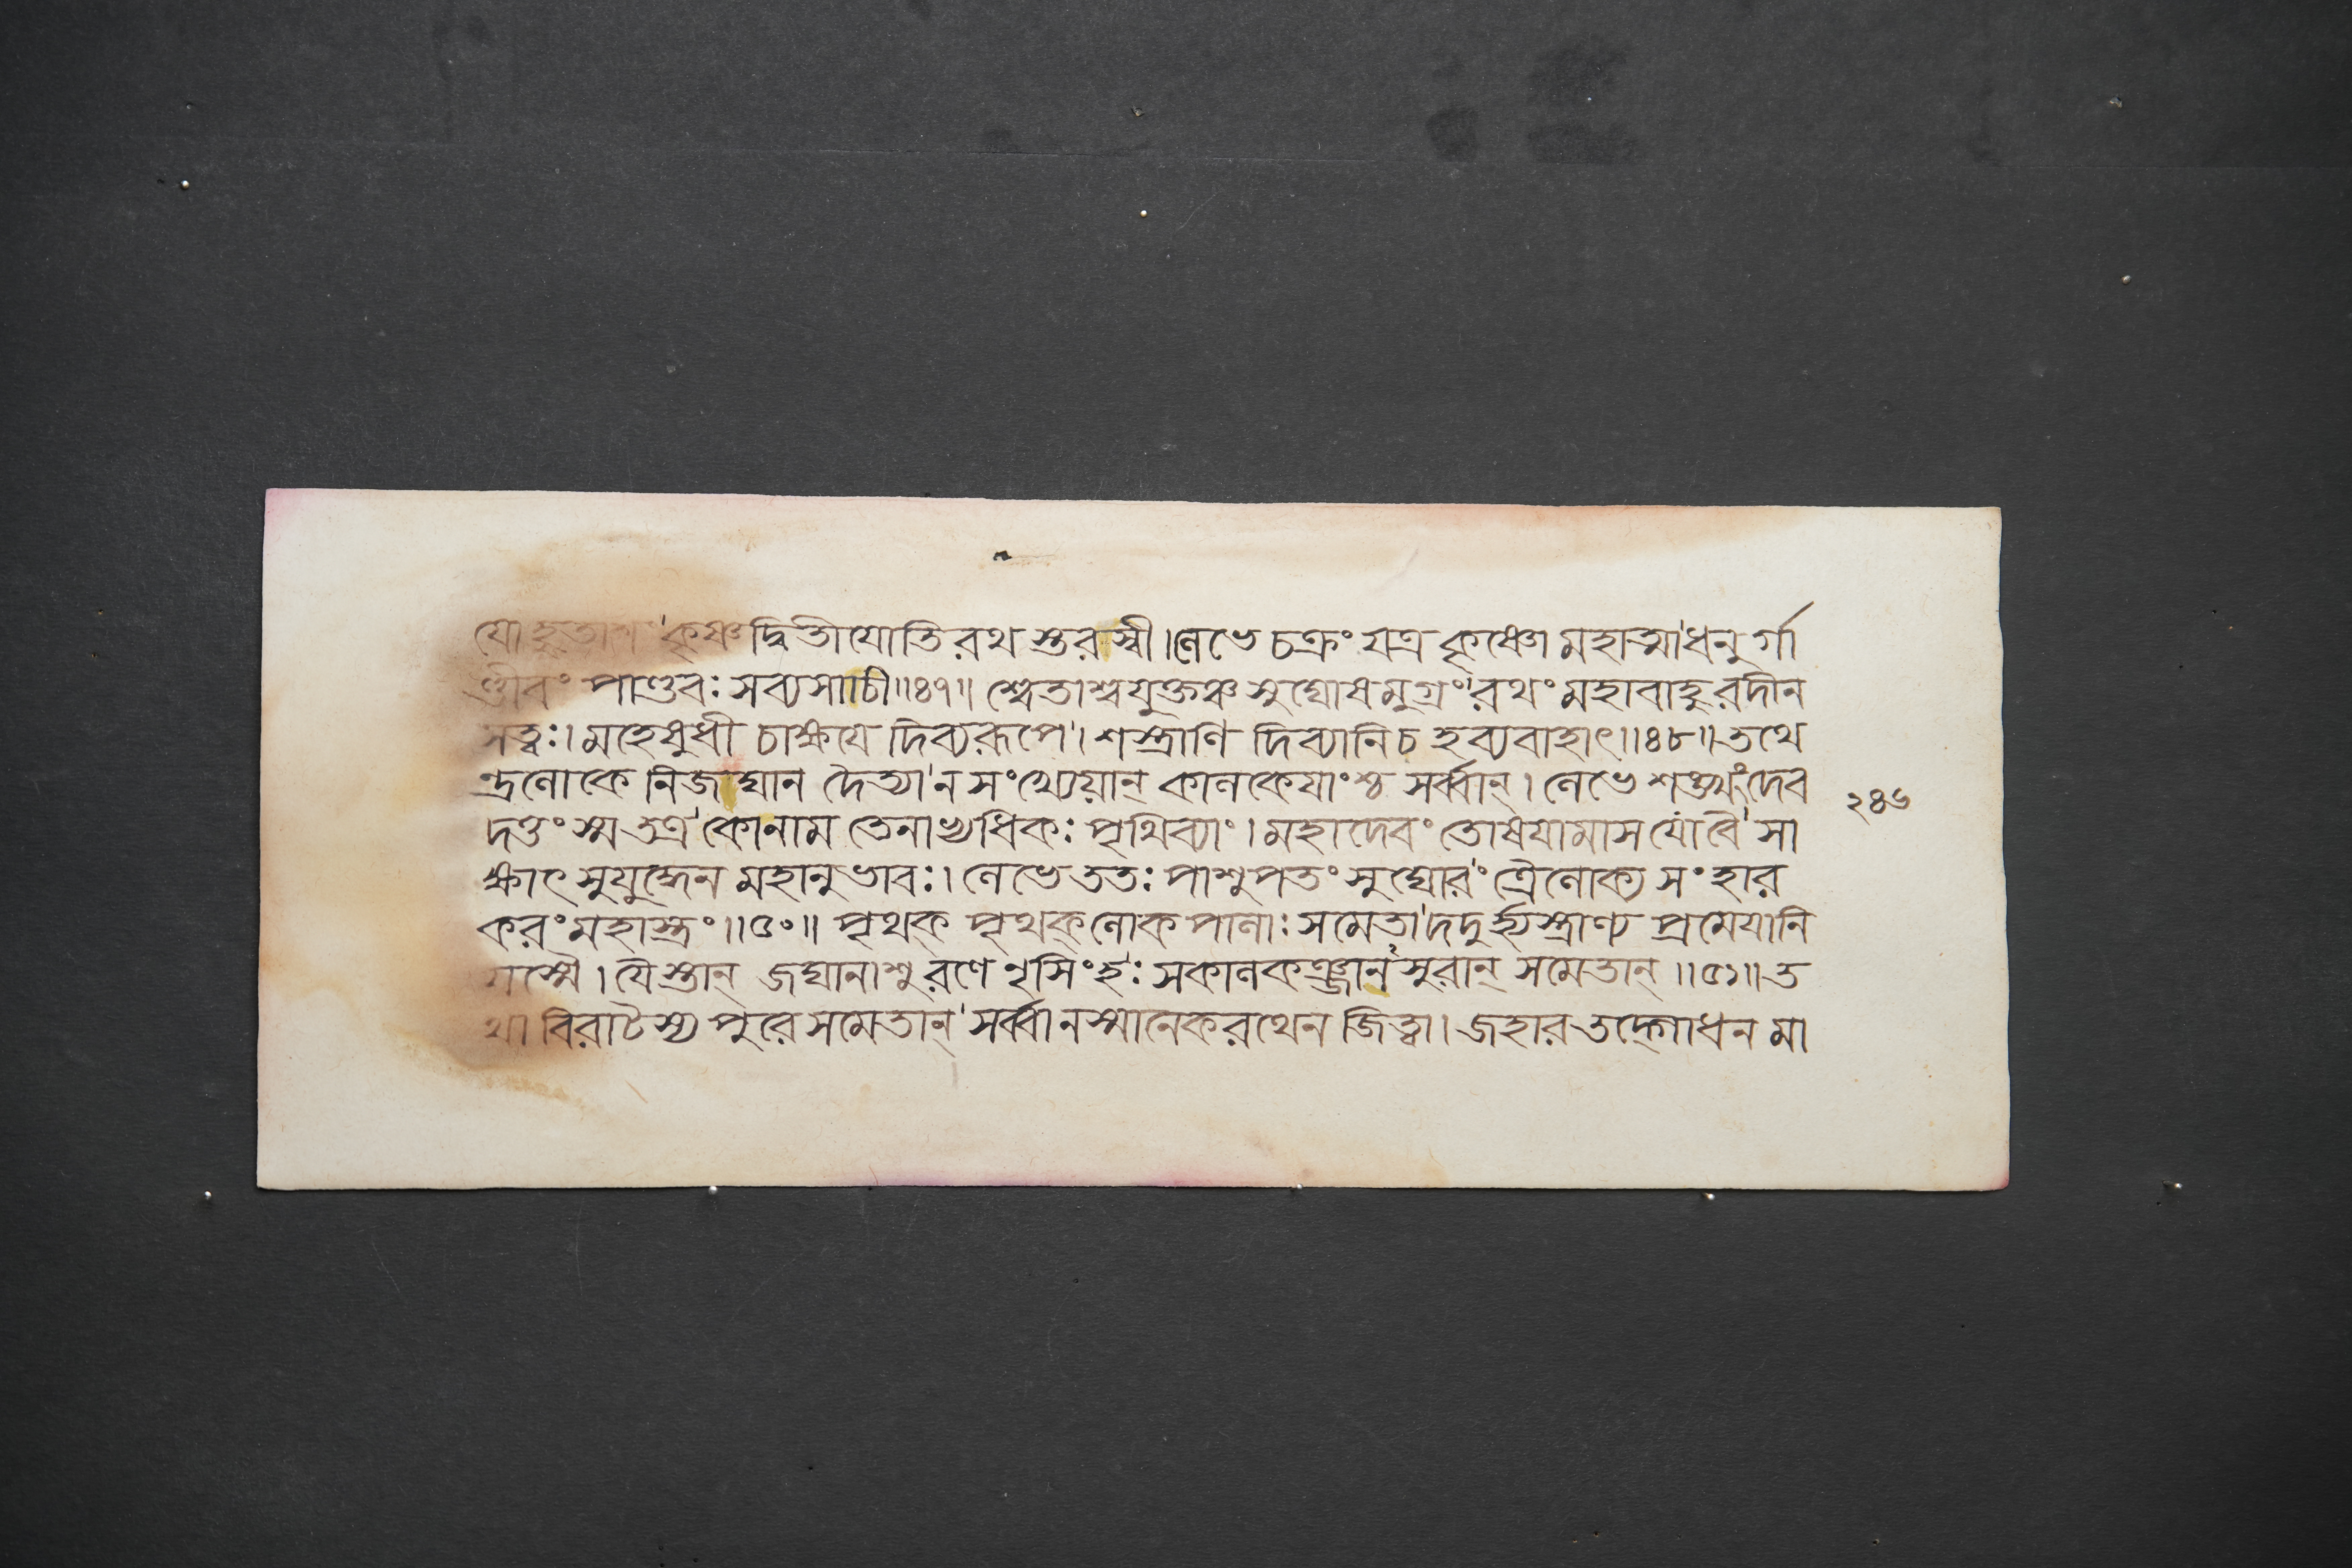 কৃষ্ণদ্বিতীযোতিরথস্তরস্বী।লেভে চক্রং যত্র কৃষ্ণো মহাত্মা'ধনুর্গা
ণ্ডীবং পাণ্ডবঃ সব্যসাচী॥৪৭॥ শ্বেতাশ্বযুক্তঞ্চ সুঘোষমুগ্রং'রথং মহাবাহুরদীন
সত্ত্বঃ। মহেষুধী চাক্ষযে দিব্যরূপে'। শস্ত্রাণি দিব্যানি চ হব্যবাহাৎ॥৪৮॥তথে
ন্দ্রলোকে নিজঘান দৈত্যা'নসংখ্যেয়ান্ কালকেযাংশ্চ সর্ব্বান্। লেভে শঙ্খং দেব
দত্তং স্ম তত্র'কোনাম তেনাভ্যধিকঃ পৃথিব্যাং। মহাদেবং তোষযামাস যো বৈ'সা
ক্ষাৎ সুযুদ্ধেন মহানুভাবঃ। লেভে ততঃ পাশুপতং সুঘোরং'ত্রৈলোক্য সংহার
করং মহাস্ত্রং॥৫০॥ পৃথক্ পৃথক্ লোকপালাঃ সমেতা'দদুর্হ্যস্ত্রাণ্য প্রমেযানি
যস্মৈ। যৈস্তান্ জঘানাশু রণে নৃসিংহঃ'সকালকঞ্জানসুরান্ সমেতান্॥৫১॥ত
থা বিরাটস্য পুরে সমেতান্'সর্ব্বানস্মানেকরথেন জিত্বা। জহার তদ্গোধন মা
২৪৬